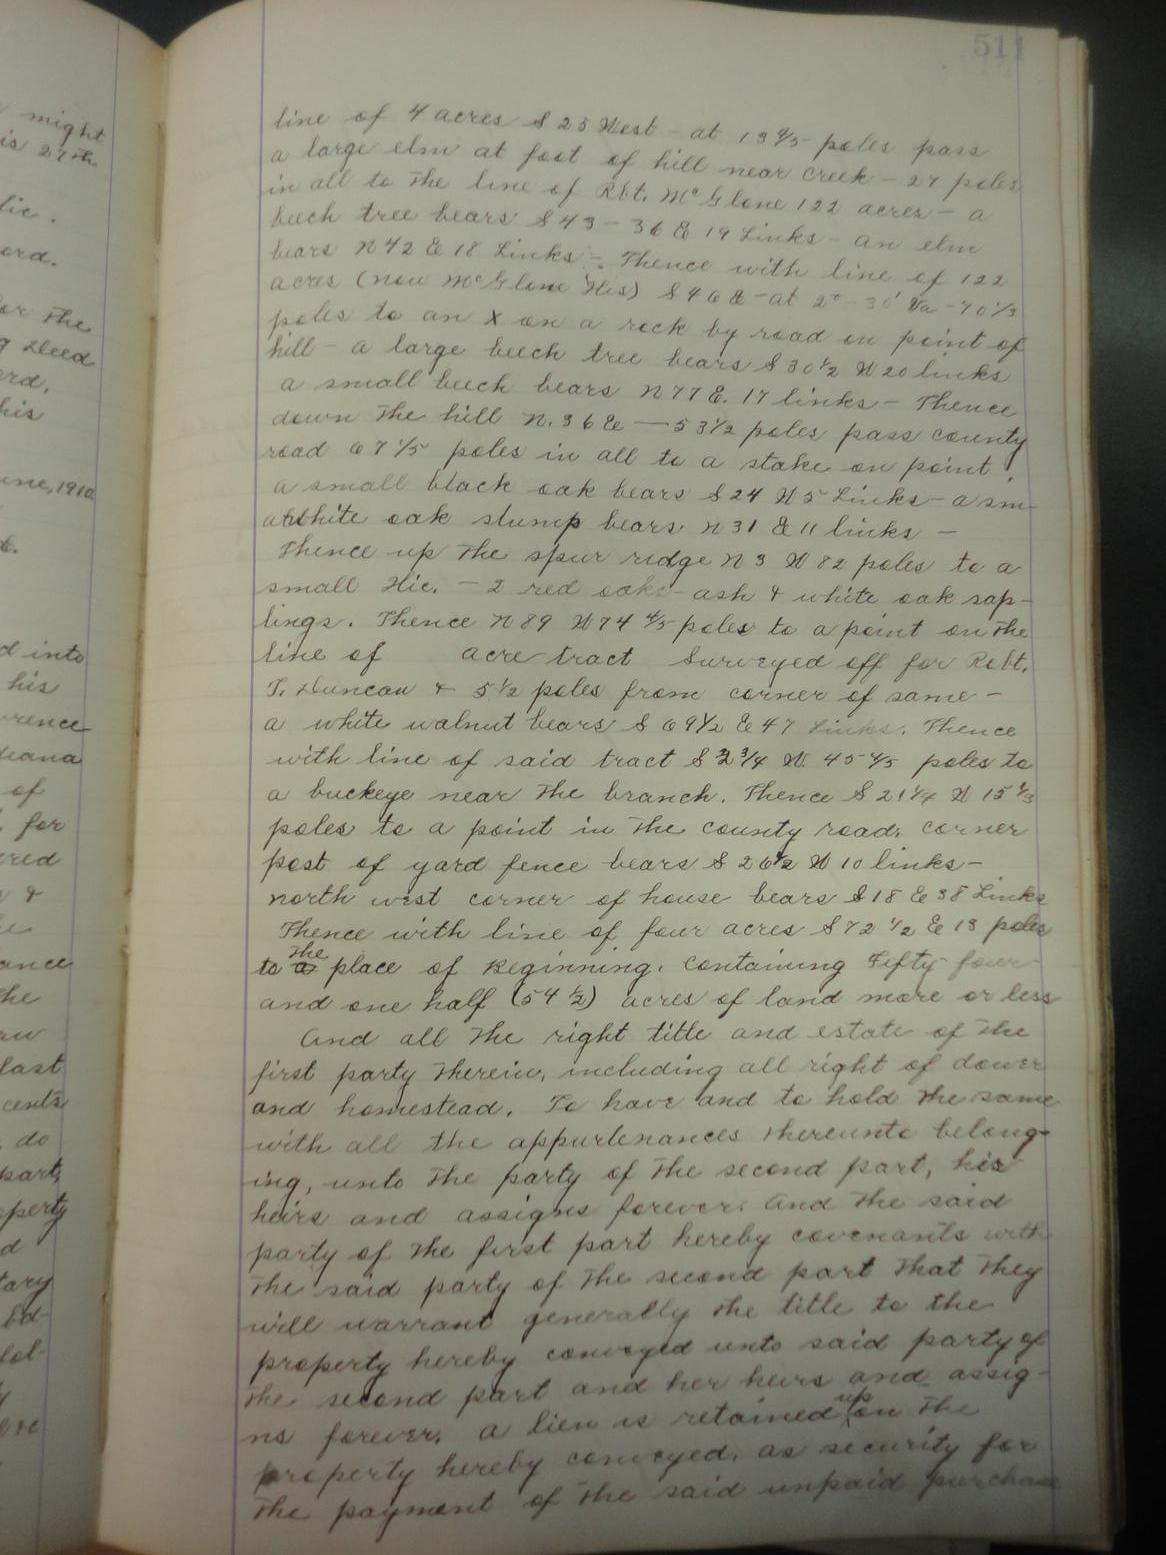 511
line of 4 acres S 25 West - at 13 4/5 poles pass
a large elm at foot of hill near creek - 27 poles
in all to the line of Rbt. McGlone 122 acres - a
beech tree bears S 43 - 36 E 19 Links - an elm
bears N 42 E 18 Links -. Thence with line of 122
acres (now McGlone Hrs) S 46 E - at 2° - 30' Va - 70 1/3
poles to an X on a rock by road on point of
hill - a large beech tree bears S 30 1/2 W 20 links
a small beech bears N 77 E. 17 links - Thence
down the hill N. 36 E - 53 1/2 poles pass county
road 67 1/5 poles in all to a stake on point
a small black oak bears S 24 W 5 Links - a sm-
all white oak stump bears N 31 E 11 links -
Thence up the spur ridge N 3 W 82 poles to a
small Hic. - 2 red oaks - ash & white oak sap-
lings. Thence N 89 W 74 4/5 poles to a point on the
line of acre tract surveyed off for Robt.
T. Duncan & 5 1/2 poles from corner of same -
a white walnut bears S 69 1/2 E 47 Links. Thence
with line of said tract S 2 3/4 W. 45 4/5 poles to
a buckeye near the branch. Thence S 21 1/4 W 15 1/3
poles to a point in the county road, corner
post of yard fence bears S 26 1/2 W 10 links -
north west corner of house bears S 18 E 38 Links
Thence with line of four acres S 72 1/2 E 13 poles
to the place of Beginning. Containing Fifty four
and one half (54 1/2) acres of land more or less
And all the right title and estate of the
first party therein, including all right of dower
and homestead. To have and to hold the same
with all the appurtenances thereunto belong-
ing, unto the party of the second part, his
heirs and assigns forever. And the said
party of the first part hereby covenants with
the said party of the second part that they
will warrant generally the title to the
property hereby conveyed unto said party of
the second part and her heirs and assig-
ns forever. a lien is retained upon the
property hereby conveyed, as security for
the payment of the said unpaid purchase
might
is 27th
ord.
for the
Deed
ord.
his
une, 1910
d into
his
of
for
&
the
last
cents
do
part,